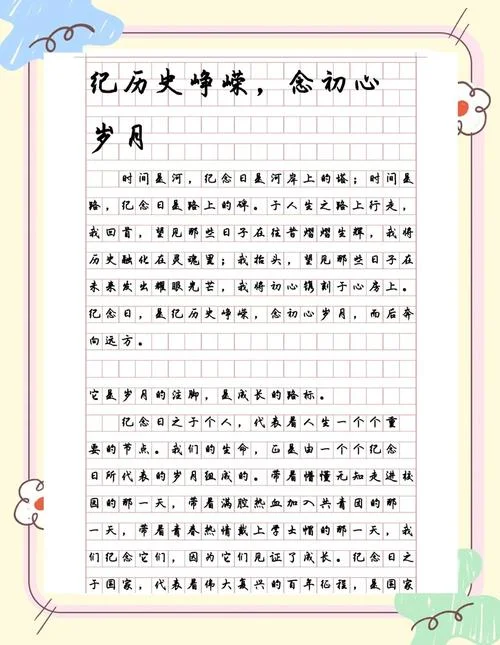 纪历史峥嵘，念初心
岁月
时间是河，纪念日是河岸上的塔；时间是
路，纪念日是路上的碑。于人生之路上行走，
我回首，望见那些日子在往昔熠熠生辉，我将
历史融化在灵魂里；我抬头，望见那些日子在
未来发出耀眼光芒，我将初心镌刻于心房上。
纪念日，是纪历史峥嵘，念初心岁月，而后奔
向远方。
它是岁月的注脚，是成长的路标。
纪念日之于个人，代表着人生一个个重
要的节点。我们的生命，正是由一个个纪念
日所代表的岁月组成的。带着懵懂无知走进校
园的那一天，带着满腔热血加入共青团的那
一天，带着青春热情戴上学士帽的那一天，我
们纪念它们，因为它们见证了成长。纪念日之
于国家，代表着伟大复兴的百年征程，是国家